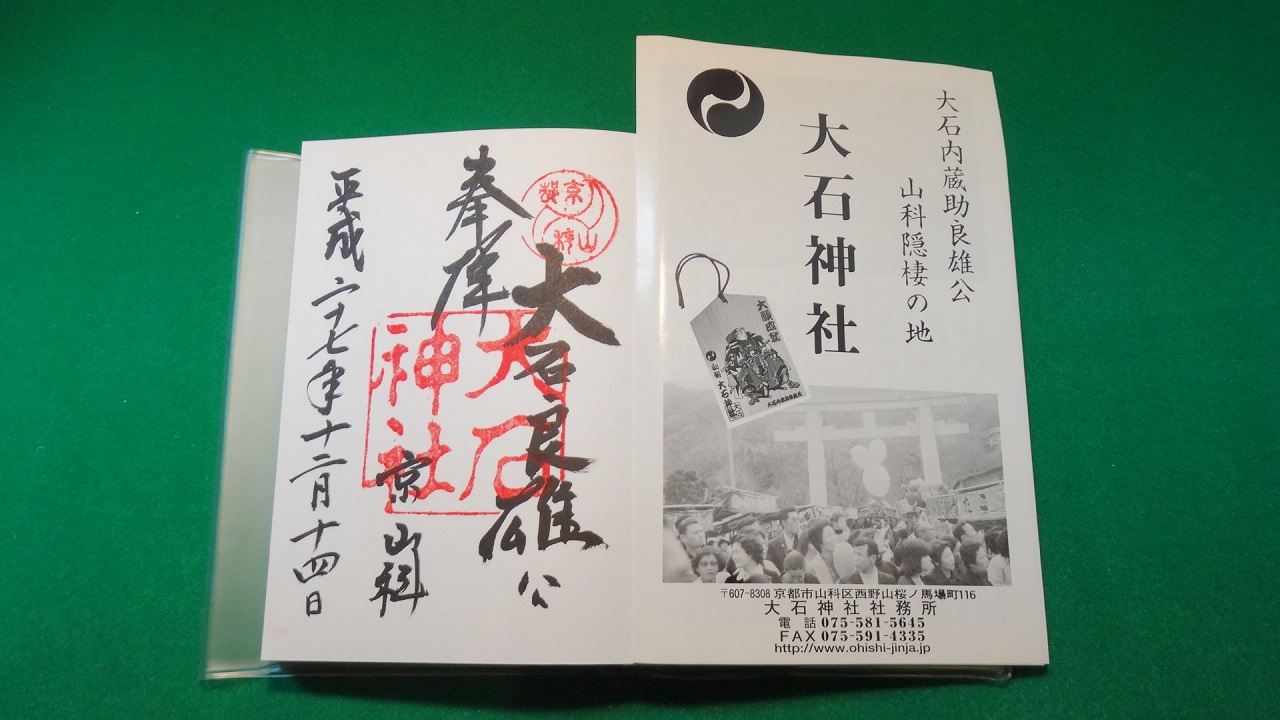 大石内蔵助良雄公
山科隠棲の地
大石神社
大願成就
山科
大石神社
〒607-8308 京都市山科区西野山桜ノ馬場町116
大石神社社務所
電話 075-581-5645
FAX 075-591-4335
http://www.ohishi-jinja.jp
奉拝
大石良雄公
大石
神社
京
山科
平成二十七年十二月十四日